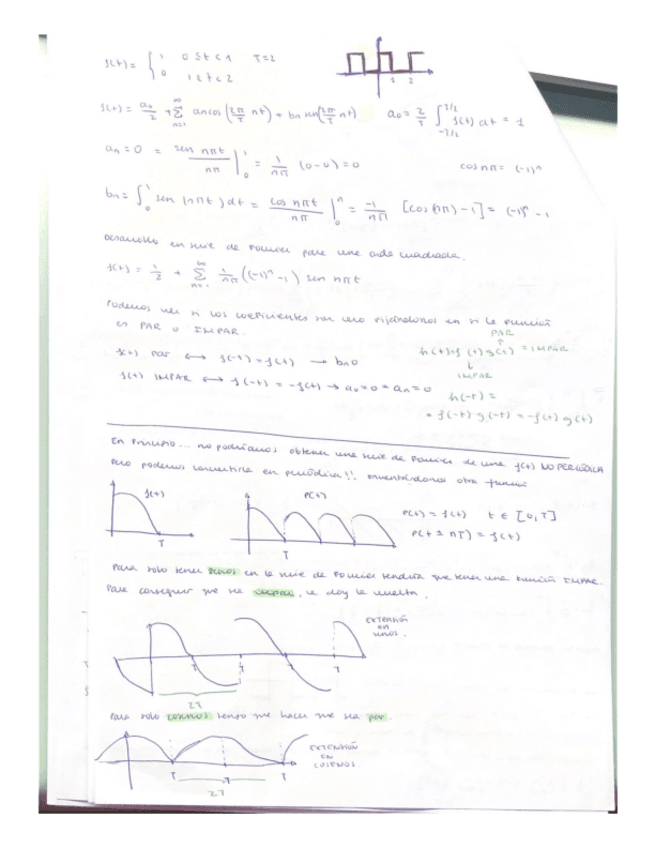 f(t) = { 1 0 ≤ t < 1 T=2
0 1 ≤ t < 2
1 2
f(t) = a₀/2 + Σ_{n=1}^{∞} an cos(2π/T nt) + bn sen(2π/T nt) a₀ = 2/T ∫_{-T/2}^{T/2} f(t) dt = 1
an = 0 = sen nπt / nπ |₀¹ = 1/nπ (0-0) = 0 cos nπ = (-1)ⁿ
bn = ∫₀¹ sen (nπt) dt = cos nπt / nπ |₀ = -1/nπ [cos(nπ) - 1] = (-1)ⁿ - 1
Desarrollo en serie de Fourier para una onda cuadrada.
f(t) = 1/2 + Σ_{n=1}^{∞} 1/nπ ((-1)ⁿ - 1) sen nπt
Podemos ver si los coeficientes son cero fijándonos en si la función
es PAR o IMPAR.
PAR
h(t) = f(t) g(t) = IMPAR
IMPAR
f(t) PAR ⟷ f(-t) = f(t) → bn 0
f(t) IMPAR ⟷ f(-t) = -f(t) → a₀ = 0 = an = 0
h(-t) =
= f(-t) g(-t) = -f(t) g(t)
En principio... no podríamos obtener una serie de Fourier de una f(t) NO PERIÓDICA
Pero podemos convertirla en periódica!! inventándonos otra función
f(t)
T
P(t)
T
P(t) = f(t) t ∈ [0, T]
P(t ± nT) = f(t)
Para solo tener senos en la serie de Fourier tendría que tener una función IMPAR.
Para conseguir que sea impar, le doy la vuelta.
EXTENSIÓN
EN
SENOS.
T T T T
2T
Para solo cosenos tengo que hacer que sea par.
EXTENSIÓN
EN
COSENOS
T T T
2T